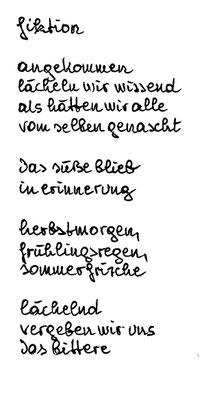 fiktion
angekommen
lächeln wir wissend
als hätten wir alle
vom selben genascht
das süße blieb
in erinnerung
herbstmorgen,
frühlingsregen,
sommerfrische
lächelnd
vergeben wir uns
das bittere